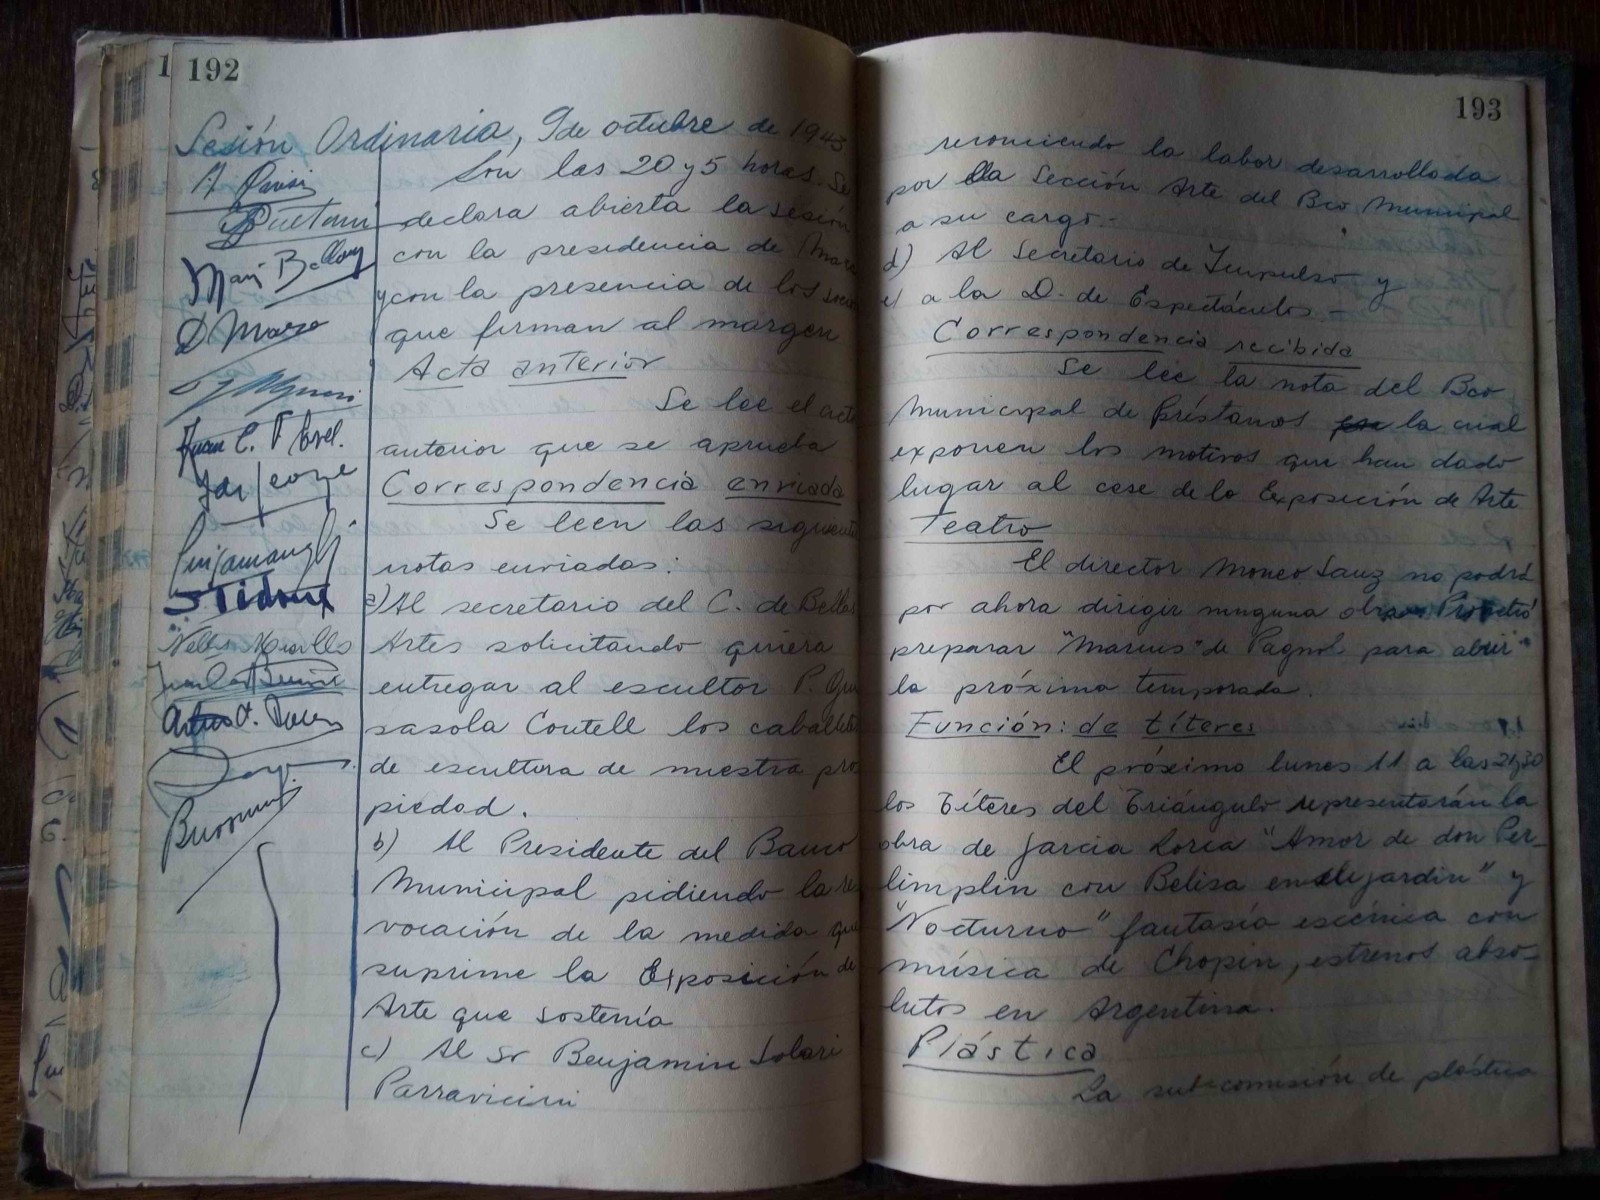 192
Sesión Ordinaria, 9 de octubre de 1943
Son las 20 y 5 horas. Se
declara abierta la sesión
con la presidencia de
y con la presencia de los
que firman al margen
Acta anterior
Se lee el acta
anterior que se aprueba
Correspondencia enviada
Se leen las
notas enviadas:
a) Al secretario del C. de Bellas
Artes solicitando quiera
entregar al escultor P.
sasola Coutell los
de escultura de nuestra pro
piedad.
b) Al Presidente del Banco
Municipal pidiendo la re
vocación de la medida que
suprime la Exposición de
Arte que sostenía
c) Al Sr Benjamin Solari
Parravicini
D Marzo
Juan C.
193
reconociendo la labor desarrollada
por la Sección Arte del Bco Municipal
a su cargo.-
d) Al Secretario de Impulso y
e) a la D. de Espectáculos -
Correspondencia recibida
Se lee la nota del Bco
Municipal de Préstamos la cual
exponen los motivos que han dado
lugar al cese de la Exposición de Arte
Teatro
El director Moneo Sanz no podrá
por ahora dirigir ninguna obra.
preparar "Marius" de Pagnol para abrir
la próxima temporada.
Función: de títeres
El próximo lunes 11 a las 21,30
los Títeres del Triángulo representarán la
obra de Garcia Lorca "Amor de don Per-
limplin con Belisa en el jardin" y
"Nocturno" fantasía escénica con
música de Chopin, estrenos abso-
lutos en Argentina.
Plástica
La sub-comisión de plástica